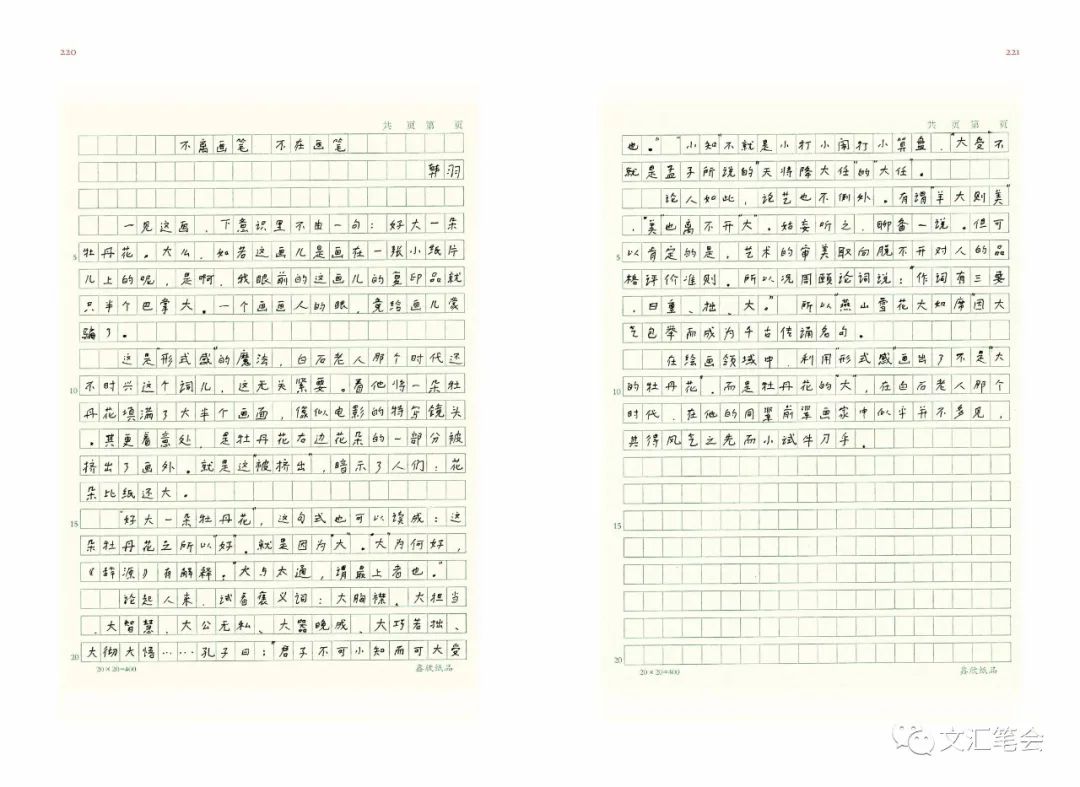 220
共 页 第 页
不离画笔 不在画笔
韩羽
一见这画，下意识里不由一句：好大一朵
牡丹花。大么，如若这画儿是画在一张小纸片
5
儿上的呢，是啊，我眼前的这画儿的复印品就
只半个巴掌大。一个画画人的眼，竟给画儿蒙
骗了。
这是“形式感”的魔法，白石老人那个时代还
不时兴这个词儿，这无关紧要。看他将一朵牡
10
丹花填满了大半个画面，像似电影的特写镜头
。其更着意处，是牡丹花右边花朵的一部分被
挤出了画外。就是这“被挤出”，暗示了人们：花
朵比纸还大。
“好大一朵牡丹花”，这句式也可以读成：这
15
朵牡丹花之所以“好”，就是因为“大”。“大”为何好，
《辞源》有解释。“大与太通，谓最上者也。”
论起人来，试看褒义词：大胸襟、大担当
、大智慧、大公无私、大器晚成、大巧若拙、
大彻大悟……孔子曰：“君子不可小知而可大受
20
20×20=400
鑫欣纸品
221
共 页 第 页
也。”“小知”不就是小打小闹打小算盘，“大受”不
就是孟子所说的“天将降大任”的“大任”。
论人如此，论艺也不例外。有谓“羊大则美”
，“美”也离不开“大”。姑妄听之，聊备一说。但可
以肯定的是，艺术的审美取向脱不开对人的品
5
格评价准则。所以况周颐论词说：“作词有三要
，曰重、拙、大。”所以“燕山雪花大如席”因大
气包举而成为千古传诵名句。
在绘画领域中，利用“形式感”画出了不是“大
的牡丹花”，而是牡丹花的“大”，在白石老人那个
10
时代，在他的同辈前辈画家中似乎并不多见，
其得风气之先而小试牛刀乎。
15
20
20×20=400
鑫欣纸品
文汇笔会